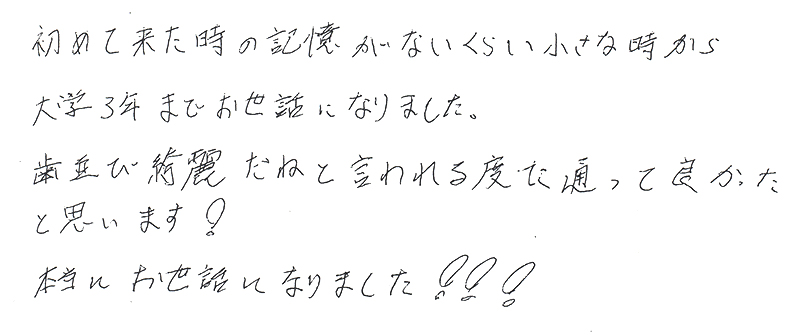 初めて来た時の記憶がないくらい小さな時から
大学3年までお世話になりました。
歯並び綺麗だねと言われる度に通って良かった
と思います!
本当にお世話になりました!!!